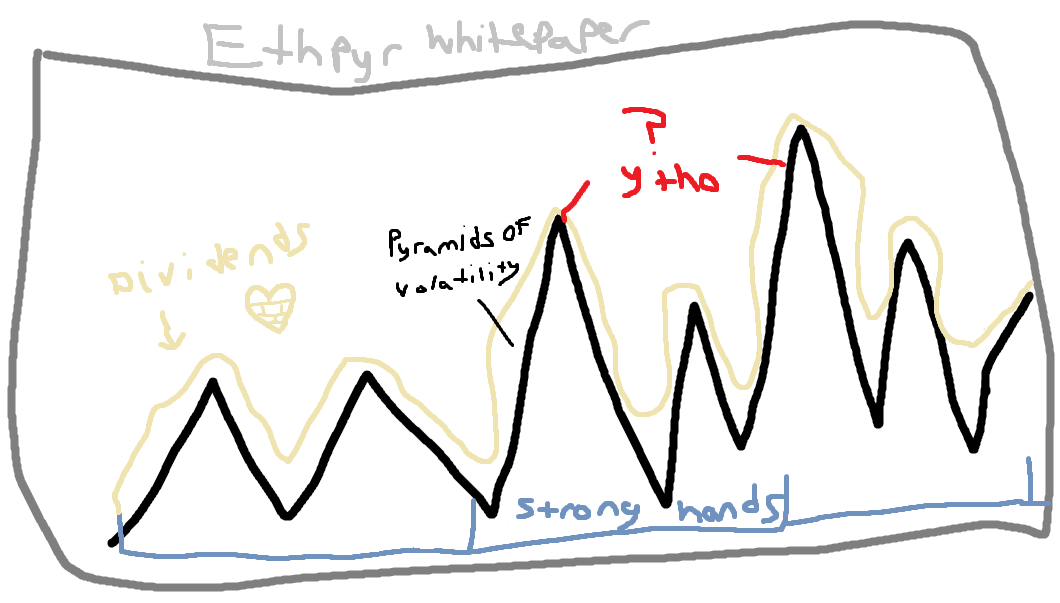 Ethpyr whitepaper
?
y tho
Pyramids OF
volatility
Dividends
strong hands